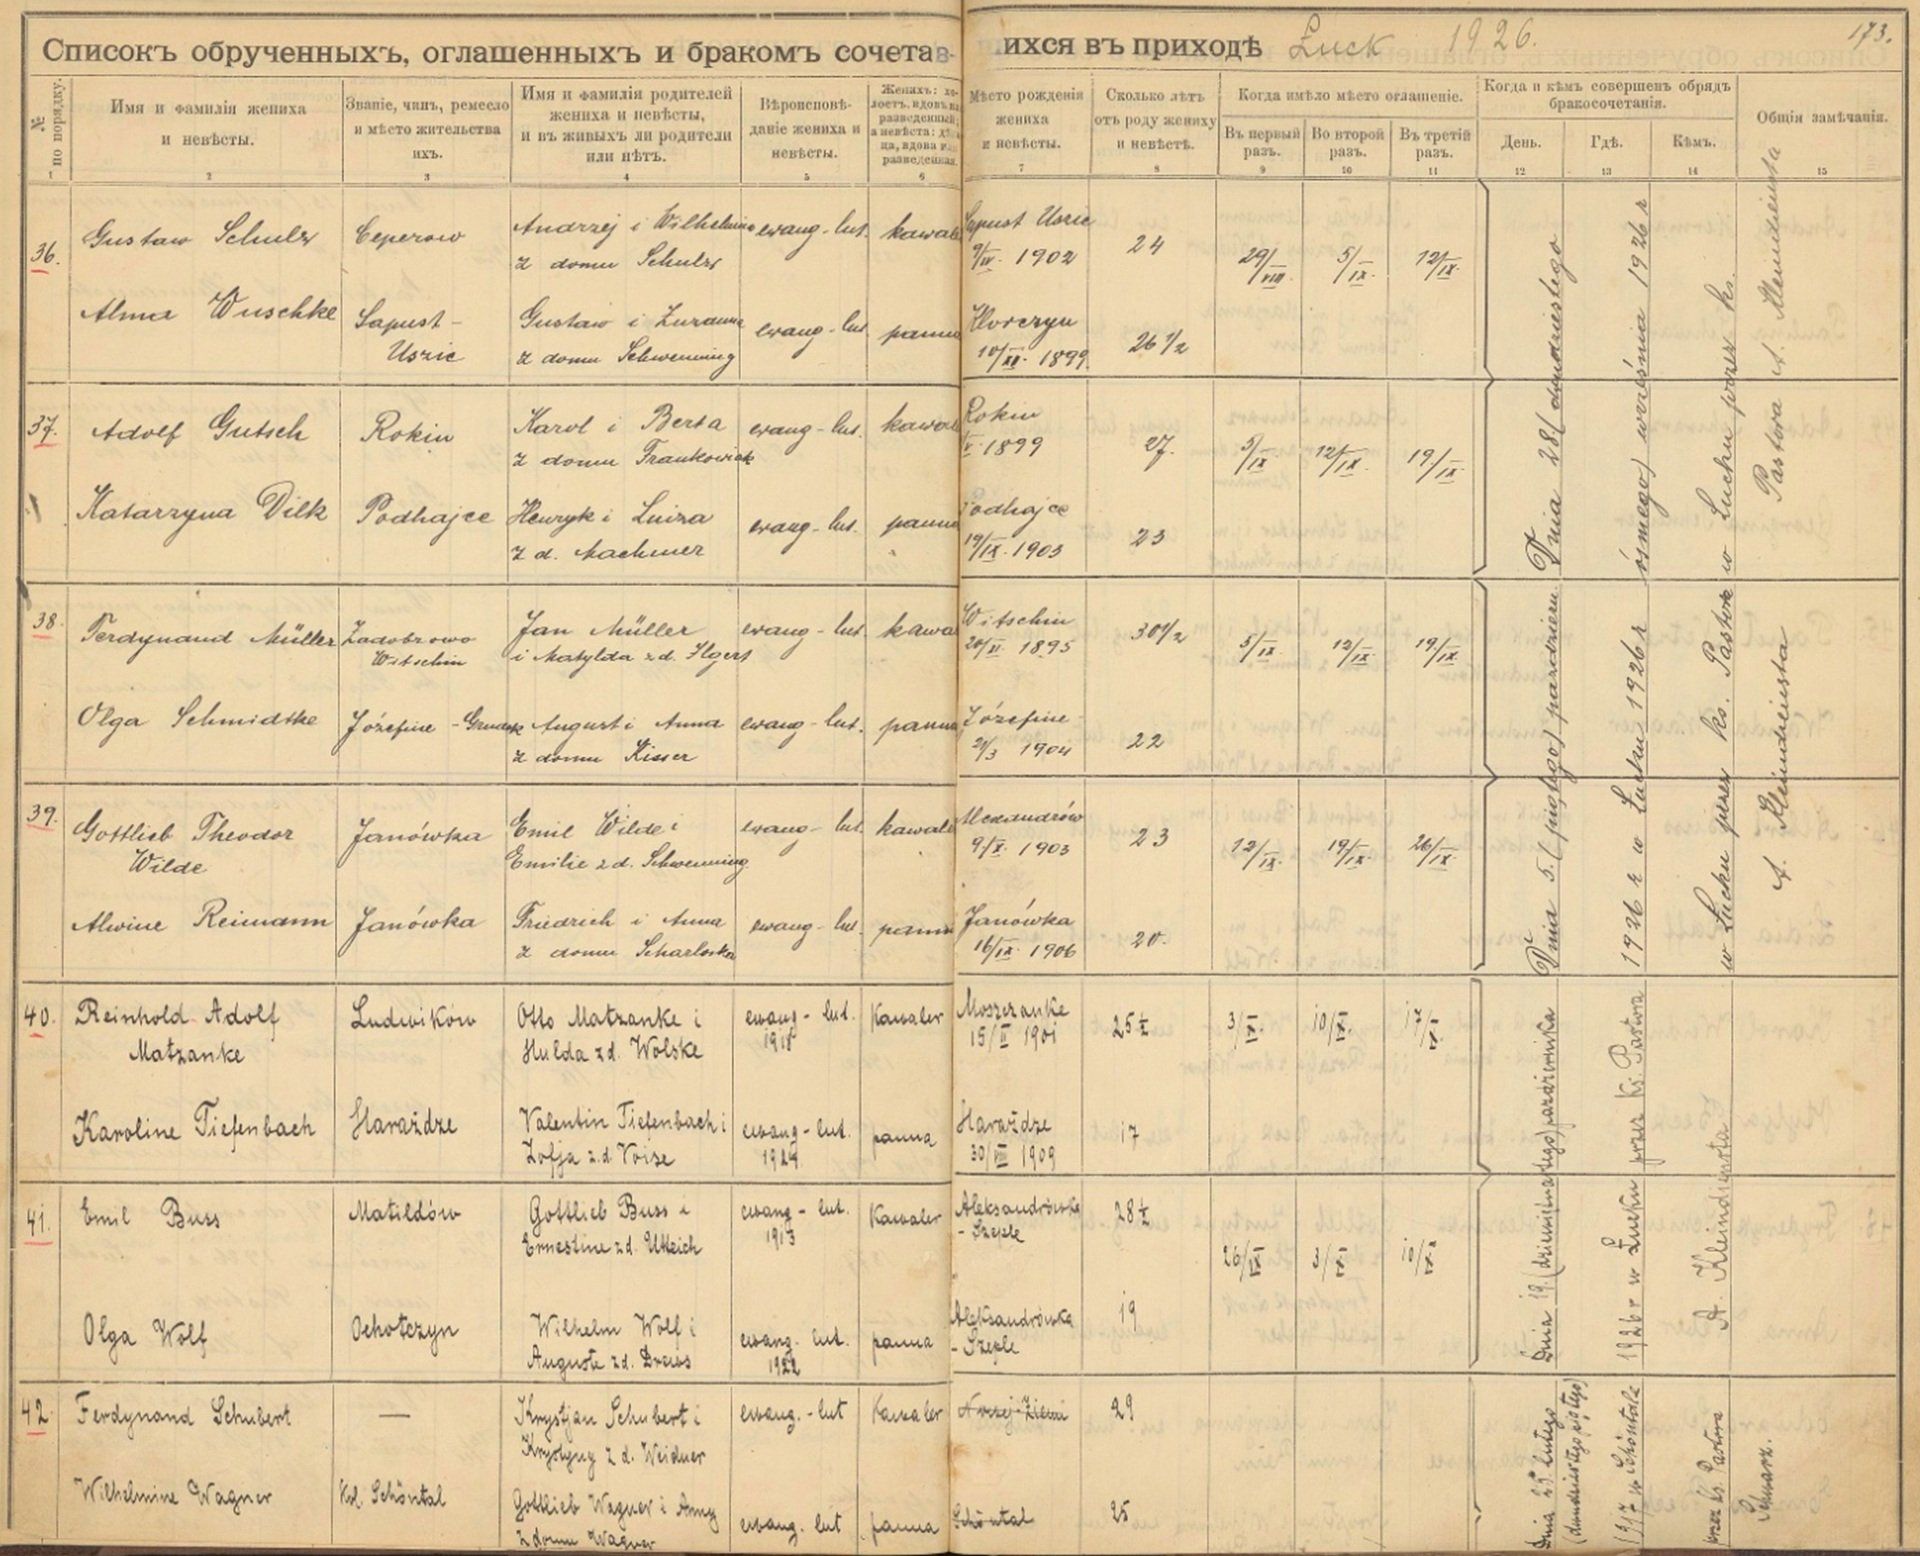 Списокъ обрученныхъ, оглашенныхъ и бракомъ сочетав-
шихся въ приходѣ Łuck 1926.
173.
№ по порядку.
Имя и фамилія жениха
и невѣсты.
Званіе, чинъ, ремесло
и мѣсто жительства
ихъ.
Имя и фамилія родителей
жениха и невѣсты,
и въ живыхъ ли родители
или нѣтъ.
Вѣроисповѣ-
даніе жениха и
невѣсты.
Женихъ: хо-
лостъ, вдовъ или
разведенный;
а невѣста: дѣви-
ца, вдова или
разведенная.
Мѣсто рожденія
жениха
и невѣсты.
Сколько лѣтъ
отъ роду жениху
и невѣстѣ.
Когда имѣло мѣсто оглашеніе.
Въ первый
разъ.
Во второй
разъ.
Въ третій
разъ.
Когда и кѣмъ совершенъ обрядъ
бракосочетанія.
День.
Гдѣ.
Кѣмъ.
Общія замѣчанія.
1 2 3 4 5 6 7 8 9 10 11 12 13 14 15
36.
Gustaw Schulz
Ceperow
Andrzej i Wilhelmine
z domu Schulz
ewang-lut.
kawaler
Sapust Uszic
9/IV. 1902
24
29/VIII.
5/IX.
12/IX.
Alma Wuschke
Sapust-
Uszic
Gustaw i Zuzanna
z domu Schwenning
ewang-lut.
panna
10/XII. 1899
26 1/2
37.
Adolf Gutsch
Rokin
Karol i Berta
z domu Frankowiak
ewang-lut.
kawaler
Rokin
1899
27.
5/IX
12/IX.
19/IX.
Katarzyna Dilk
Podhajce
Henryk i Luiza
z d. Machmer
ewang-lut.
panna
Podhajce
19/IX. 1903
23
Dnia 28 (dwudziestego
ósmego) września 1926 r
w Łucku przez ks.
Pastora A. Kleindiensta
38.
Ferdynand Müller
Zadobrowo
Witschin
Jan Müller
i Matylda z d. Ilgert
ewang-lut.
kawa
Witschin
20/XI 1895
30 1/2
5/IX.
12/IX.
19/IX.
Olga Schmidtke
Józefine-
August i Anna
z domu Kisser
ewang-lut.
panna
Józefine
21/3 1904
22
39.
Gottlieb Theodor
Wilde
Janówka
Emil Wilde i
Emilie z d. Schwenning
ewang-lut.
kawaler
Alexandrów
9/X. 1903
23
12/IX.
19/IX.
26/IX.
Alwine Reimann
Janówka
Friedrich i Anna
z domu
ewang-lut.
panna
Janówka
16/IX. 1906
20.
Dnia 5. (piątego) październ.
1926 r w Łucku 1926 r
w Łucku przez ks. Pastora
A. Kleindiensta
40.
Reinhold Adolf
Matzanke
Ludwików
Otto Matzanke i
Hulda z d. Wolske
ewang-lut.
1918
Kawaler
Moszczanke
15/II 1901
25 1/2
3/X.
10/X.
17/X.
Karoline Tiefenbach
Harażdze
Valentin Tiefenbach i
Zofja z.d Voise
ewang-lut.
1924
panna
Harażdze
30/VIII 1909
17
41.
Emil Buss
Matildów
Gottlieb Buss i
Ernestine z d. Utkeich
ewang-lut.
1913
Kawaler
Aleksandrówka
- Szeple
28 1/2
26/IX
3/X
10/X
Olga Wolf
Ochotczyn
Wilhelm Wolf i
Auguste z d. Drews
ewang. lut.
1922
panna
Aleksandrówka
- Szeple
19
Dnia 19. (dziewiętnastego) października
1926 r w Łucku przez Ks. Pastora
A. Kleindiensta
42.
Ferdynand Schubert
—
Krystjan Schubert i
Krystyny z d. Weidner
ewang.-lut
Kawaler
29
Wilhelmine Wagner
Kol. Schöntal
Gottlieb Wagner i Anny
z domu Wagner
ewang. lut
panna
Schöntal
25
Dnia 25 lutego
(dwudziestego piątego)
1917 w Schöntalu
przez ks. Pastora
Schwarz.